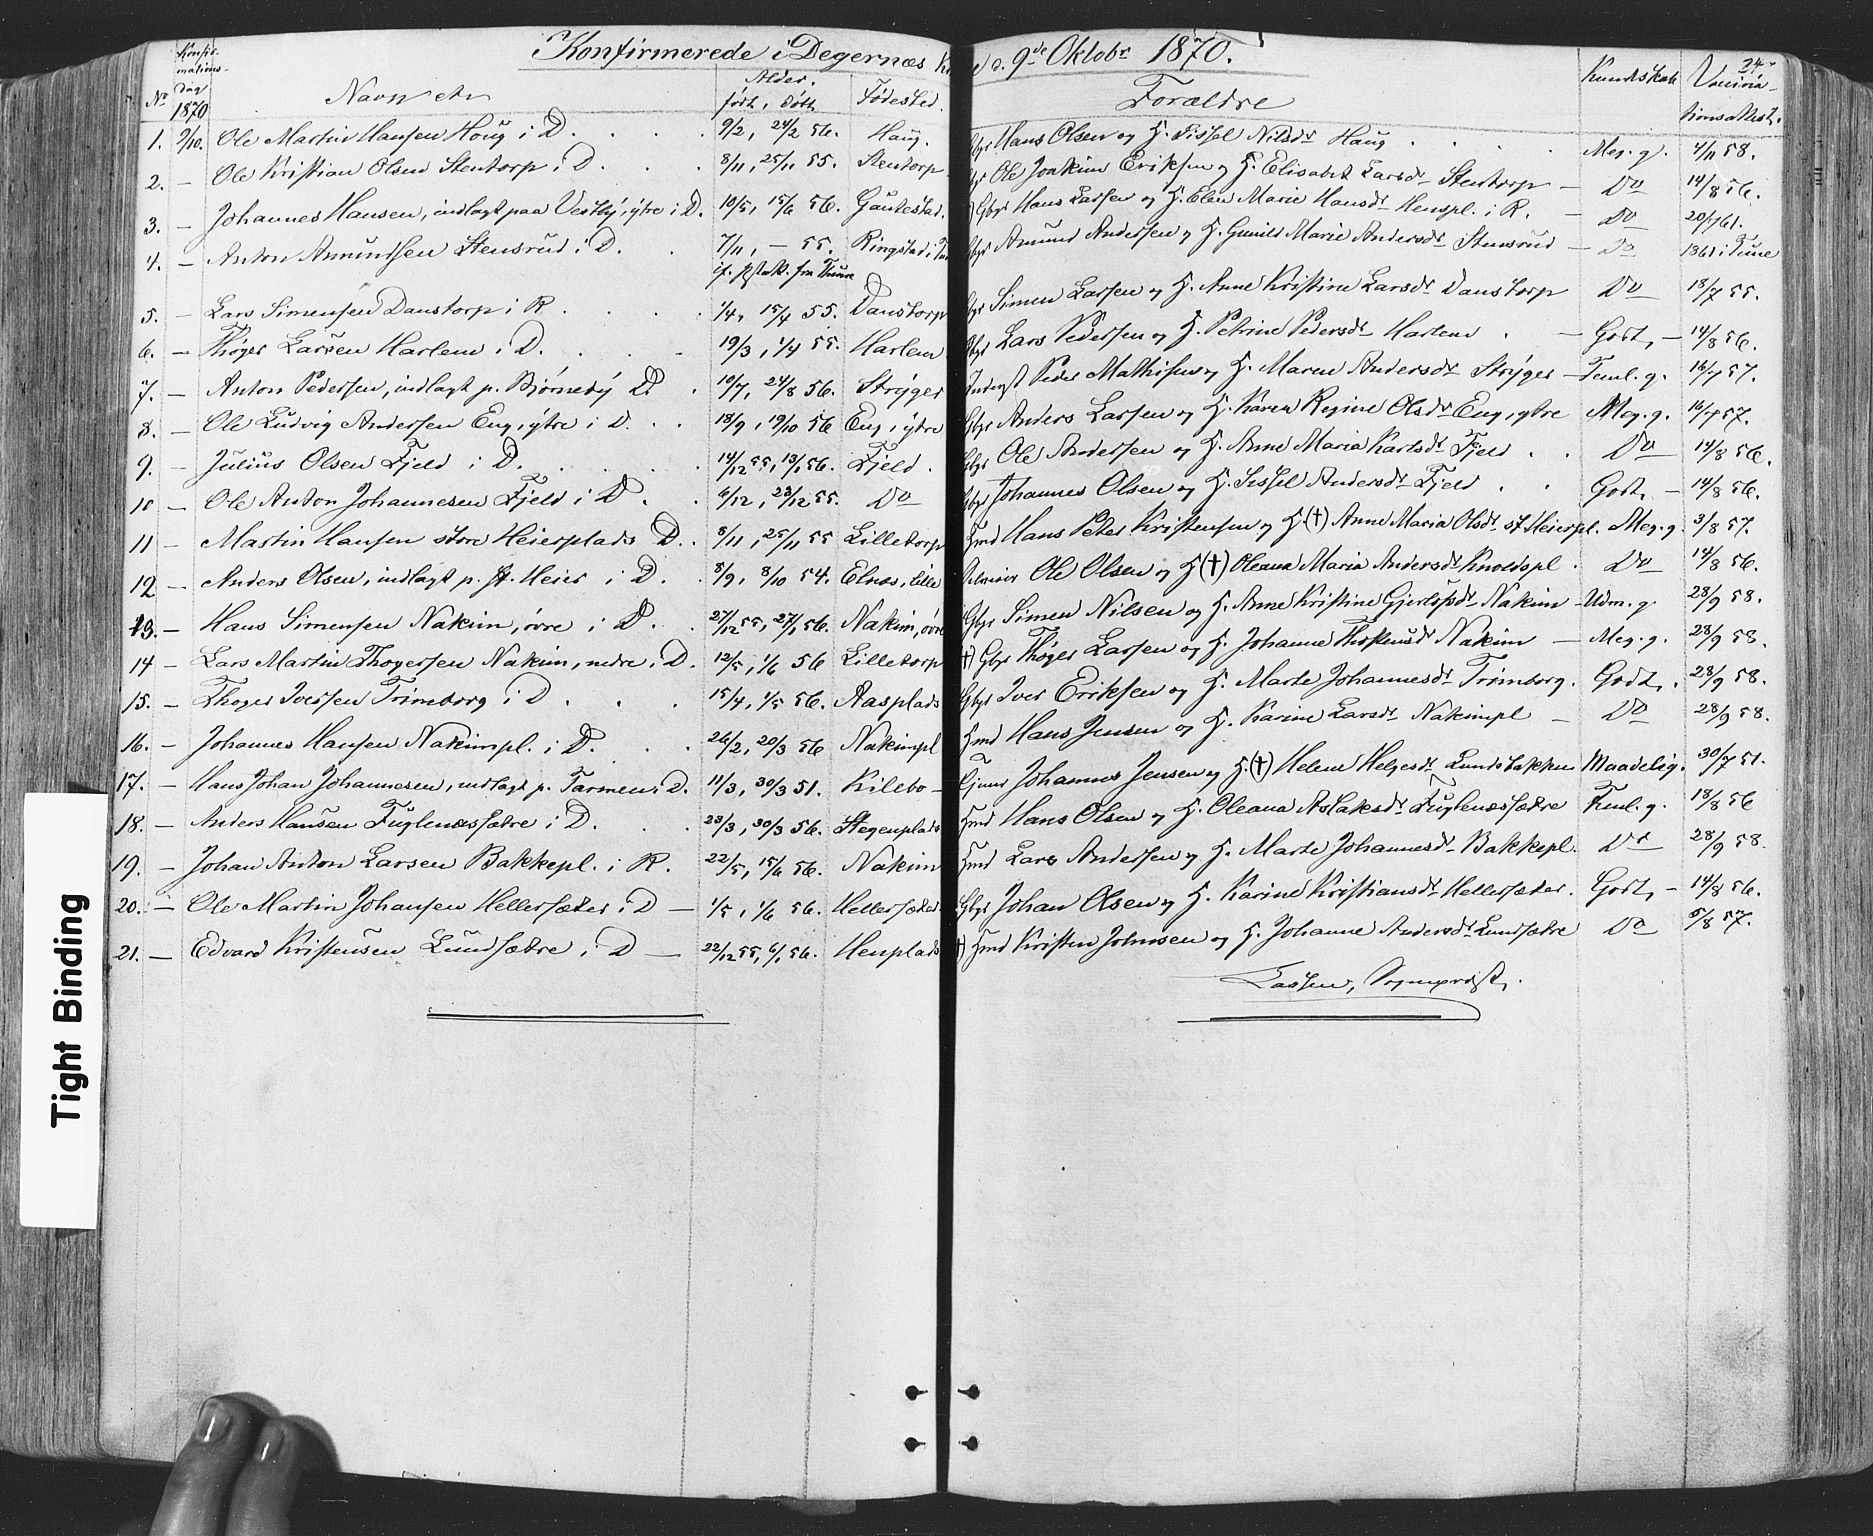 Konfirmerede i Degernæs d. 9de Oktobr 1870.
24
No Konfirmations-Dag 1870 Navn Alder. født, døbt Fødested. Forældre Kundskab Vaccinationsattest.
1. 9/10. Ole Martin Hansen Houg i D. 9/2, 24/2 56. Haug. Gbr Hans Olsen og H. Sissel Nilsdr Haug Meg. g. 4/11 58.
2. — Ole Kristian Olsen Stentorp i D. 8/11, 25/11 55. Stentorp Ole Joakim Eriksen og H. Elisabet Larsdr Stentorp — Do 14/8 56.
3. — Johannes Hansen, indlagt paa Vestby, ytre i D. 10/5, 15/6 56. Gautestad. Gbr Hans Larsen og H. Elen Marie Hansdr Henspl. i R. — Do 20/7 61.
4. — Anton Amundsen Stensrud i D. 7/11, — 55. Ringstad i Amund Andersen og H. Gunild Marie Andersdr Stensrud — Do 1861 i Tune
if. fra Thune
5. — Lars Simensen Danstorp i R. 1/4, 15/4 55. Danstorp Simen Larsen og H. Anne Kristine Larsdr Danstorp Do 18/7 55.
6. — Thøger Larsen Harlem i D. 19/3, 1/4 55. Harlem Lars Pedersen og H. Petrine Pedersdr Harlem — Godt, — 14/8 56.
7. — Anton Pedersen, indlagt p. Bjørneby D. 10/7, 24/8 56. Stryger Inderst Peder Mathisen og H. Maren Andersdr Stryger — Teml. g. 16/7 57.
8. — Ole Ludvig Andersen Eng, ytre i D. 18/9, 19/10 56 Eng, ytre Gbr Anders Larsen og H. Karen Regine Olsdr Eng, ytre Meg. g. 16/7 57.
9. — Julius Olsen Fjeld i D. 14/12 55, 13/1 56. Fjeld. Gbr Ole Andersen og H. Anne Maria Karlsdr Fjeld Do 14/8 56.
10 — Ole Anton Johannesen Fjeld i D. 6/12, 23/12 55. Do Gbr Johannes Olsen og H. Sissel Andersdr Fjeld Godt, — 14/8 56.
11 — Martin Hansen store Heierplads D. 8/11, 25/11 55 Lilletorp Hmd Hans Peter Kristensen og H. (†) Anne Maria Olsdr st Heierpl. Meg. g. 3/8 57.
12 — Anders Olsen, indlagt p. st. Heier i D. 8/9, 8/10 54. Elnæs, lille Ole Olsen og H (†) Oleana Maria Andersdr Knoldspl. Do 14/8 56.
13. — Hans Simensen Nakim, øvre i D. 27/12 55, 27/1 56. Nakim, øvre Gbr Simen Nilsen og H. Anne Kristine Gjerlufsdr Nakim — Udm. g. 28/9 58.
14 — Lars Martin Thøgersen Nakim, nedre i D. 12/5, 1/6 56 Lilletorp †) Gbr Thøger Larsen og H. Johanne Thostensdr Nakim — Meg. g. 28/9 58.
15. — Thøger Iversen Trimborg i D 15/4, 1/5 56. Aasplads Gbr Iver Eriksen og H. Marte Johannesdr Trimborg. Godt, . 28/9 58.
16. — Johannes Hansen Nakimpl. i D. 26/2, 20/3 56 Nakimpl Hmd Hans Jensen og H. Karine Larsdr Nakimpl — Do 28/9 58.
17. — Hans Johan Johannesen, indlagt p. Tarmen i D. 11/3, 30/3 51. Kilebo — Johannes Jensen og H. (†) Helene Helgesdr Lundsbakken Maadelig. 30/7 51.
18. — Anders Hansen Fuglenæssætre i D. 23/3, 30/3 56. Stegenplads Hmd Hans Olsen og H. Oleana Aslaksdr Fuglenæssætre Teml. g. 18/8 56
19. — Johan Anton Larsen Bakkepl. i R. 22/5, 15/6 56. Nakim Hmd Lars Andersen og H. Marte Johannesdr Bakkepl. Do 28/9 58.
20. — Ole Martin Johansen Hellersæter i D — 1/5, 1/6 56. Hellersæter Gbr Johan Olsen og H. Karine Kristiansdr Hellersæter. Godt, — 14/8 56.
21. — Edvard Kristensen Lundsætre i D — 22/12 55, 6/1 56. Henplads †) Hmd Kristen Johnsen og H. Johanne Andersdr Lundsætre Do 5/8 57.
Lassen, Sogneprest.
Tight Binding